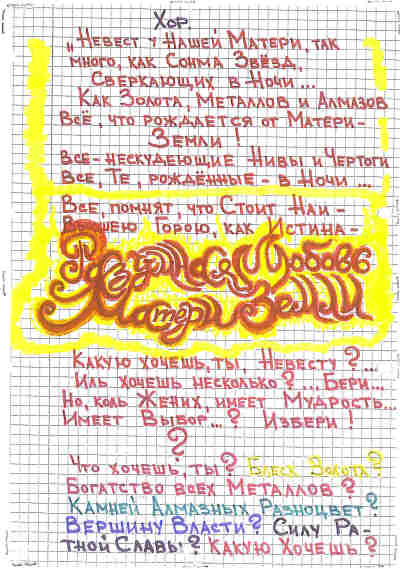 Хор.
„Невест у Нашей Матери, так
много, как Сонма Звёзд,
Сверкающих в Ночи...
Как Золота, Металлов и Алмазов
Всё, что рождается от Матери-
Земли!
Все-нескудеющие Нивы и Чертоги
Все, Те, рождённые - в Ночи...
Все, помнят, что Стоит Наи-
Высшею Горою, как Истина-
Разумная Любовь
Матери Земли
Какую хочешь, ты, Невесту?...
Иль хочешь несколько?... Бери...
Но, коль Жених, имеет Мудрость...
Имеет Выбор...? Избери!
?
Что хочешь, ты? Блеск Золота?
Богатство всех Металлов?
Камней Алмазных Разноцвет?
Вершину Власти? Силу Ра-
тной Славы? Какую Хочешь?